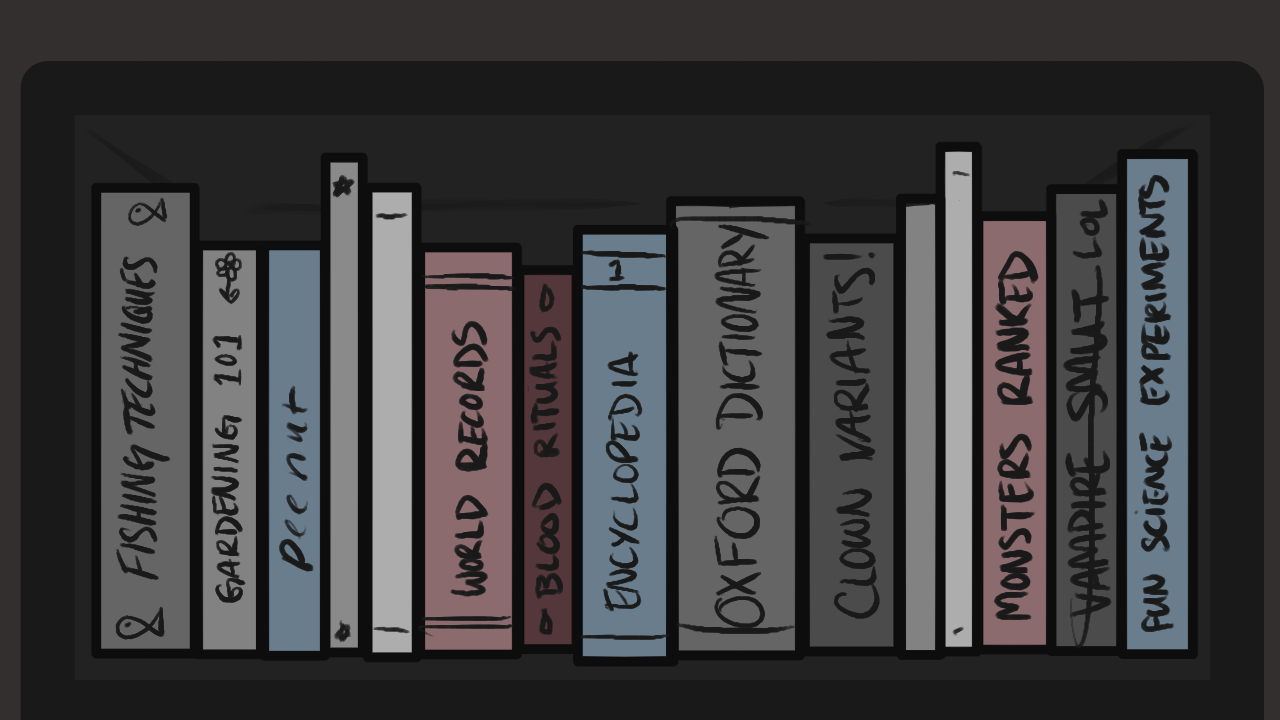 FISHING TECHNIQUES
GARDENING 101
Peenut
WORLD RECORDS
BLOOD RITUALS
1
ENCYCLOPEDIA
OXFORD DICTIONARY
CLOWN VARIANTS!
MONSTERS RANKED
VAMPIRE SMUT LOL
FUN SCIENCE EXPERIMENTS